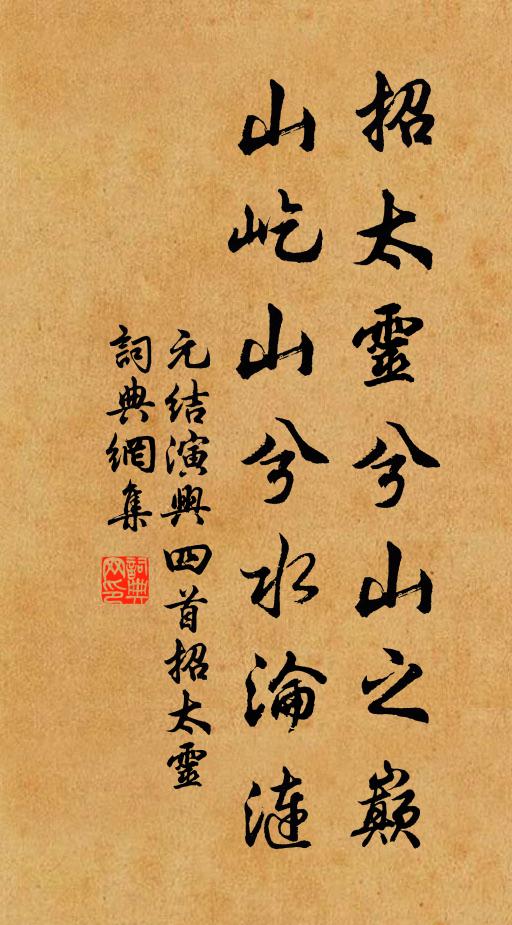 招太靈兮山之巔
山屹山兮水淪漣
元结演興四首招太靈
詞典網集
詞典
网印